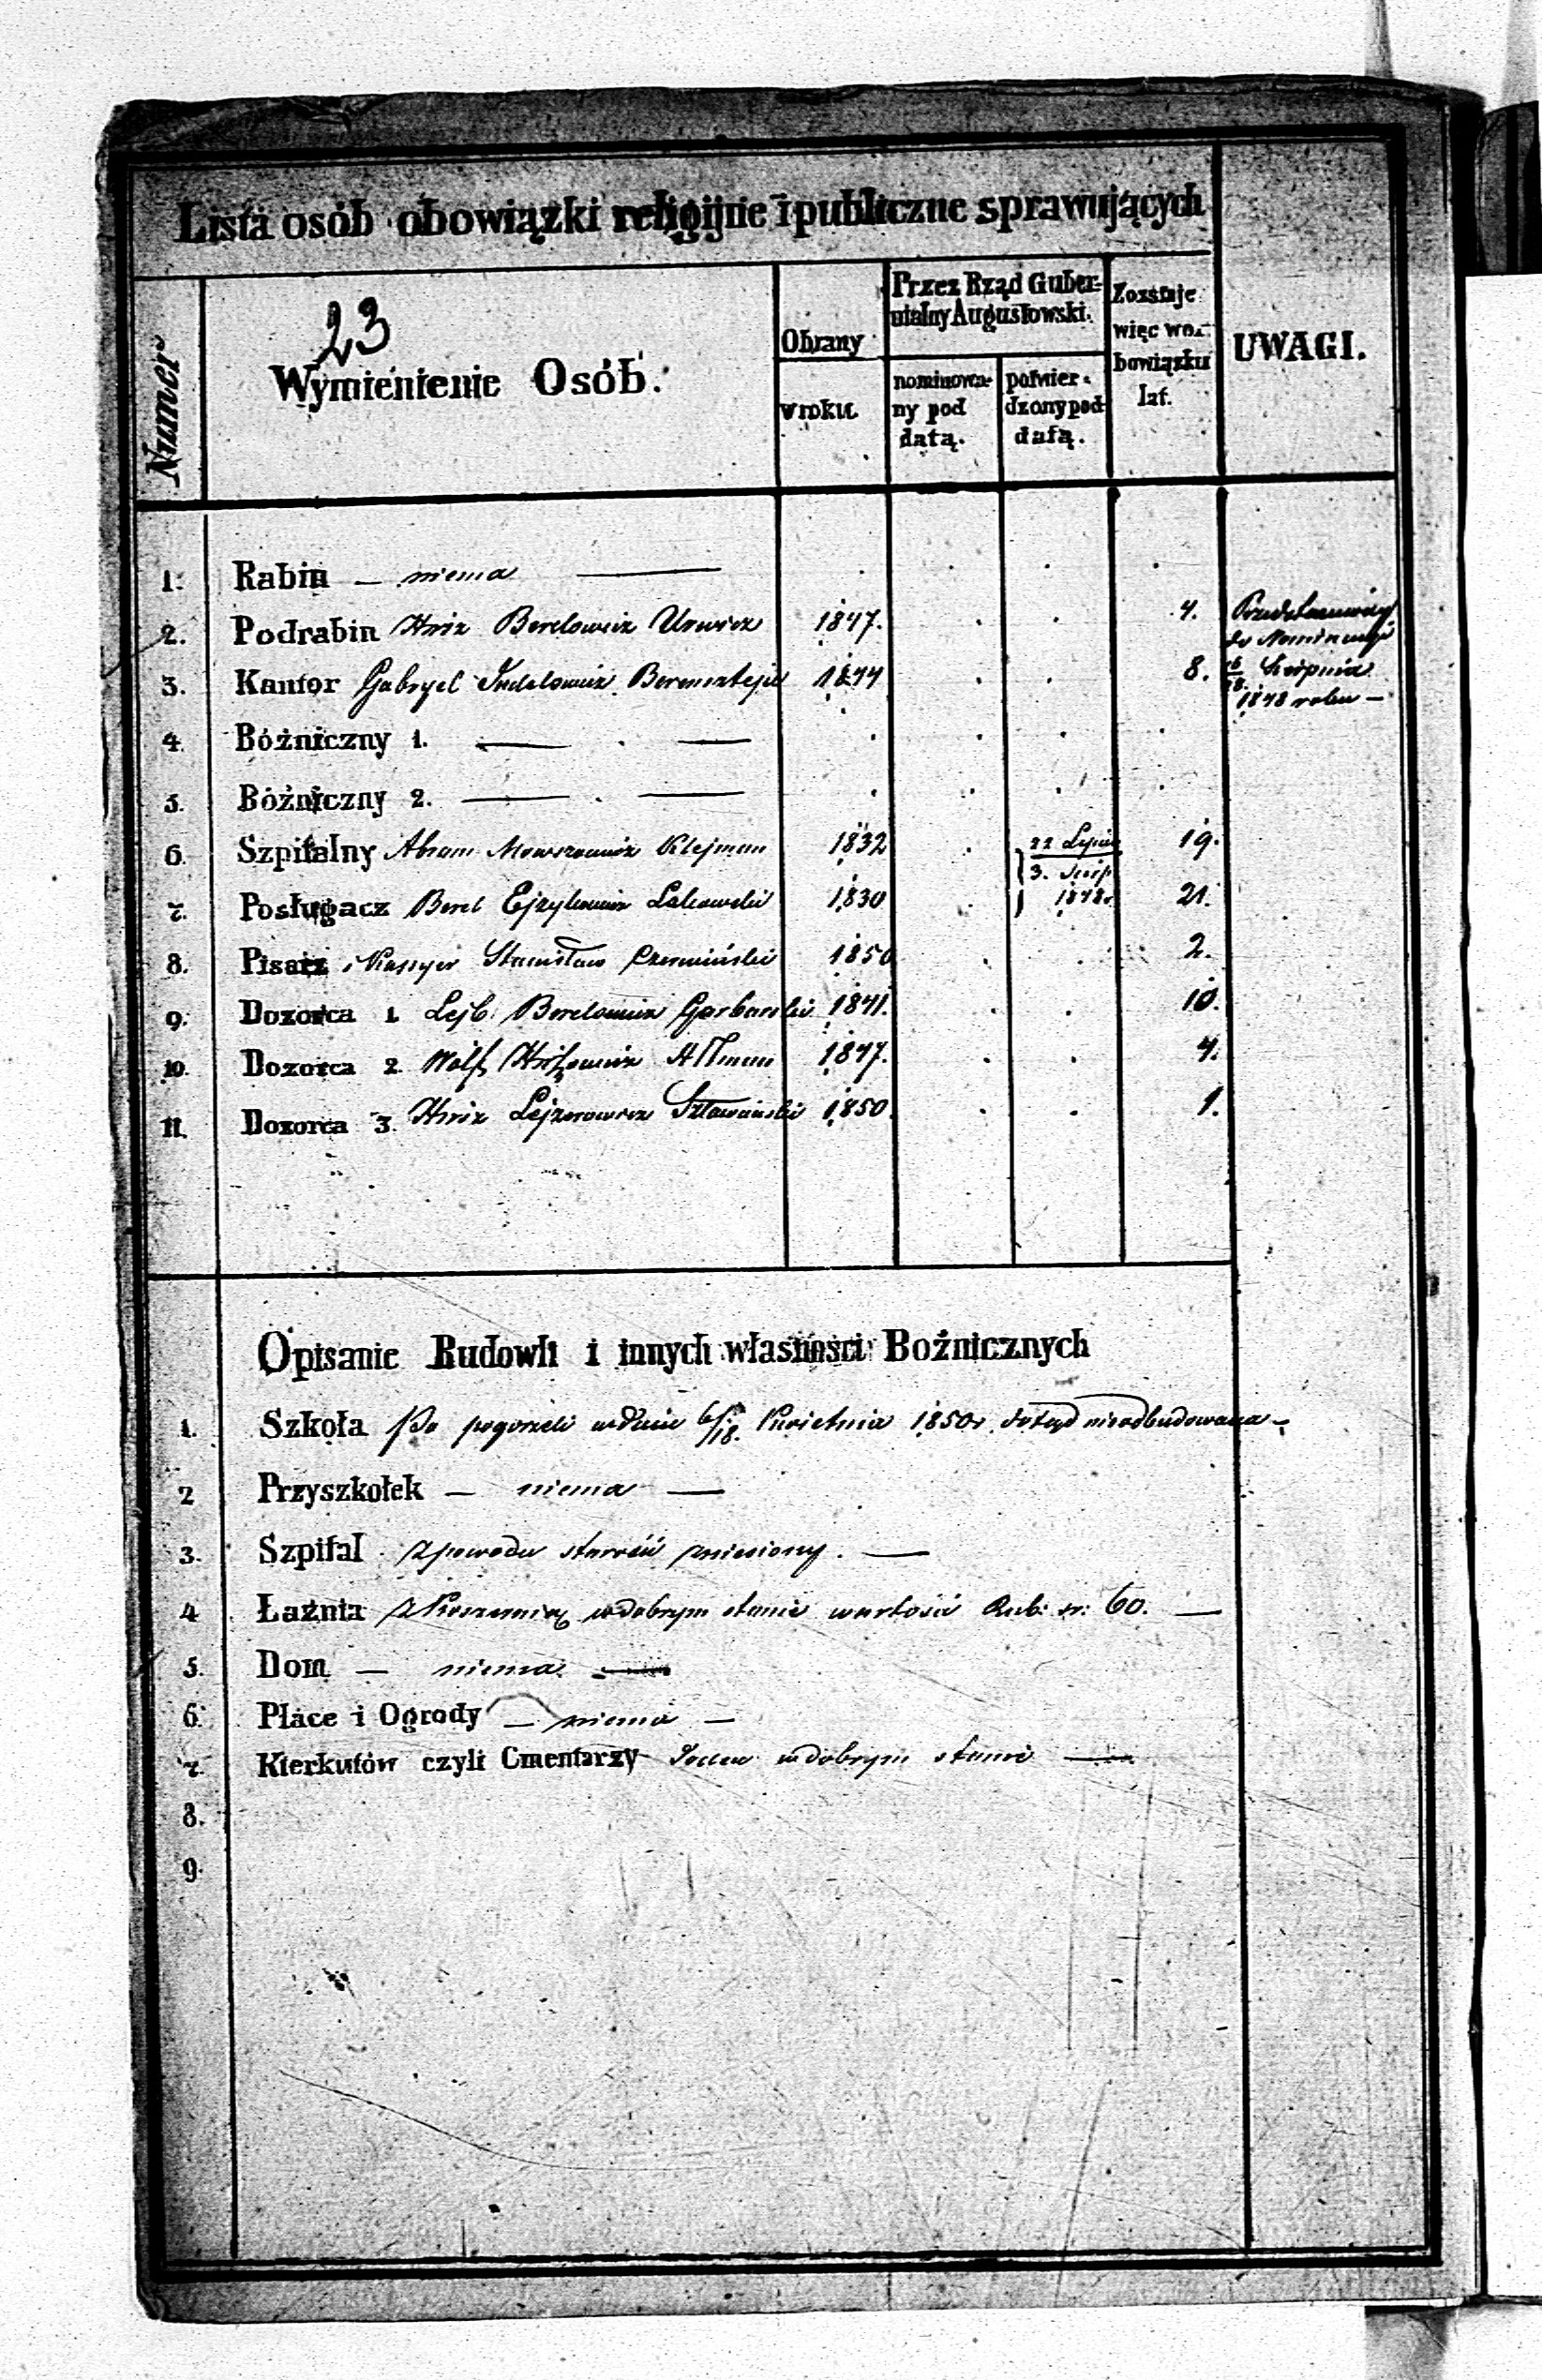 Lista osób obowiązki religijne i publiczne sprawujących
Numer
23
Wymienienie Osób.
Obrany
w roku
Przez Rząd Guber-
nialny Augustowski.
nominowa-
ny pod
datą.
potwier-
dzony pod
datą.
Zostaje
więc w o-
bowiązku
lat.
UWAGI.
1. Rabin — niema —
2. Podrabin Hirsz Berelowicz Urwicz 1847. 4. Przedstawiony
do Nominacyi
16/28 Sierpnia
1848 roku —
3. Kantor Gabryel Judelowicz Berensztejn 1844 8.
4. Bóżniczny 1. — . —
5. Bóżniczny 2. — . —
6. Szpitalny Abram Mowszowicz Klejman 1832 22 Lipca 19.
3. Sierp
7. Posługacz Berel Ejzykowicz 1830 1848r. 21.
8. Pisarz i Kassyer Stanisław Czerwiński 1850 2.
9. Dozorca 1. Lejb Berelowicz Garbarski 1841. 10.
10. Dozorca 2. Wolf Hirszowicz Altman 1847. 4.
11. Dozorca 3. Hirsz Lejzerowicz 1850. 1.
Opisanie Budowli i innych własności Bożnicznych
1. Szkoła Po pogorzeli w dniu 6/18. Kwietnia 1850r. dotąd nieodbudowana —
2 Przyszkołek — niema —
3. Szpital z powodu starości zniesiony. —
4 Łaźnia w dobrym stanie wartości Rub: sr: 60. —
5. Dom — niema —
6. Place i Ogrody — niema —
7. Kierkutów czyli Cmentarzy Jeden w dobrym stanie —
8.
9.